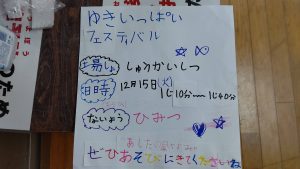 ゆきいっぱい
フェスティバル
場しょ しゅうかいしつ
日時 12月15日(火)
1じ10分〜1じ40分
ないよう ひみつ
ぜひあそびにきてくださいね